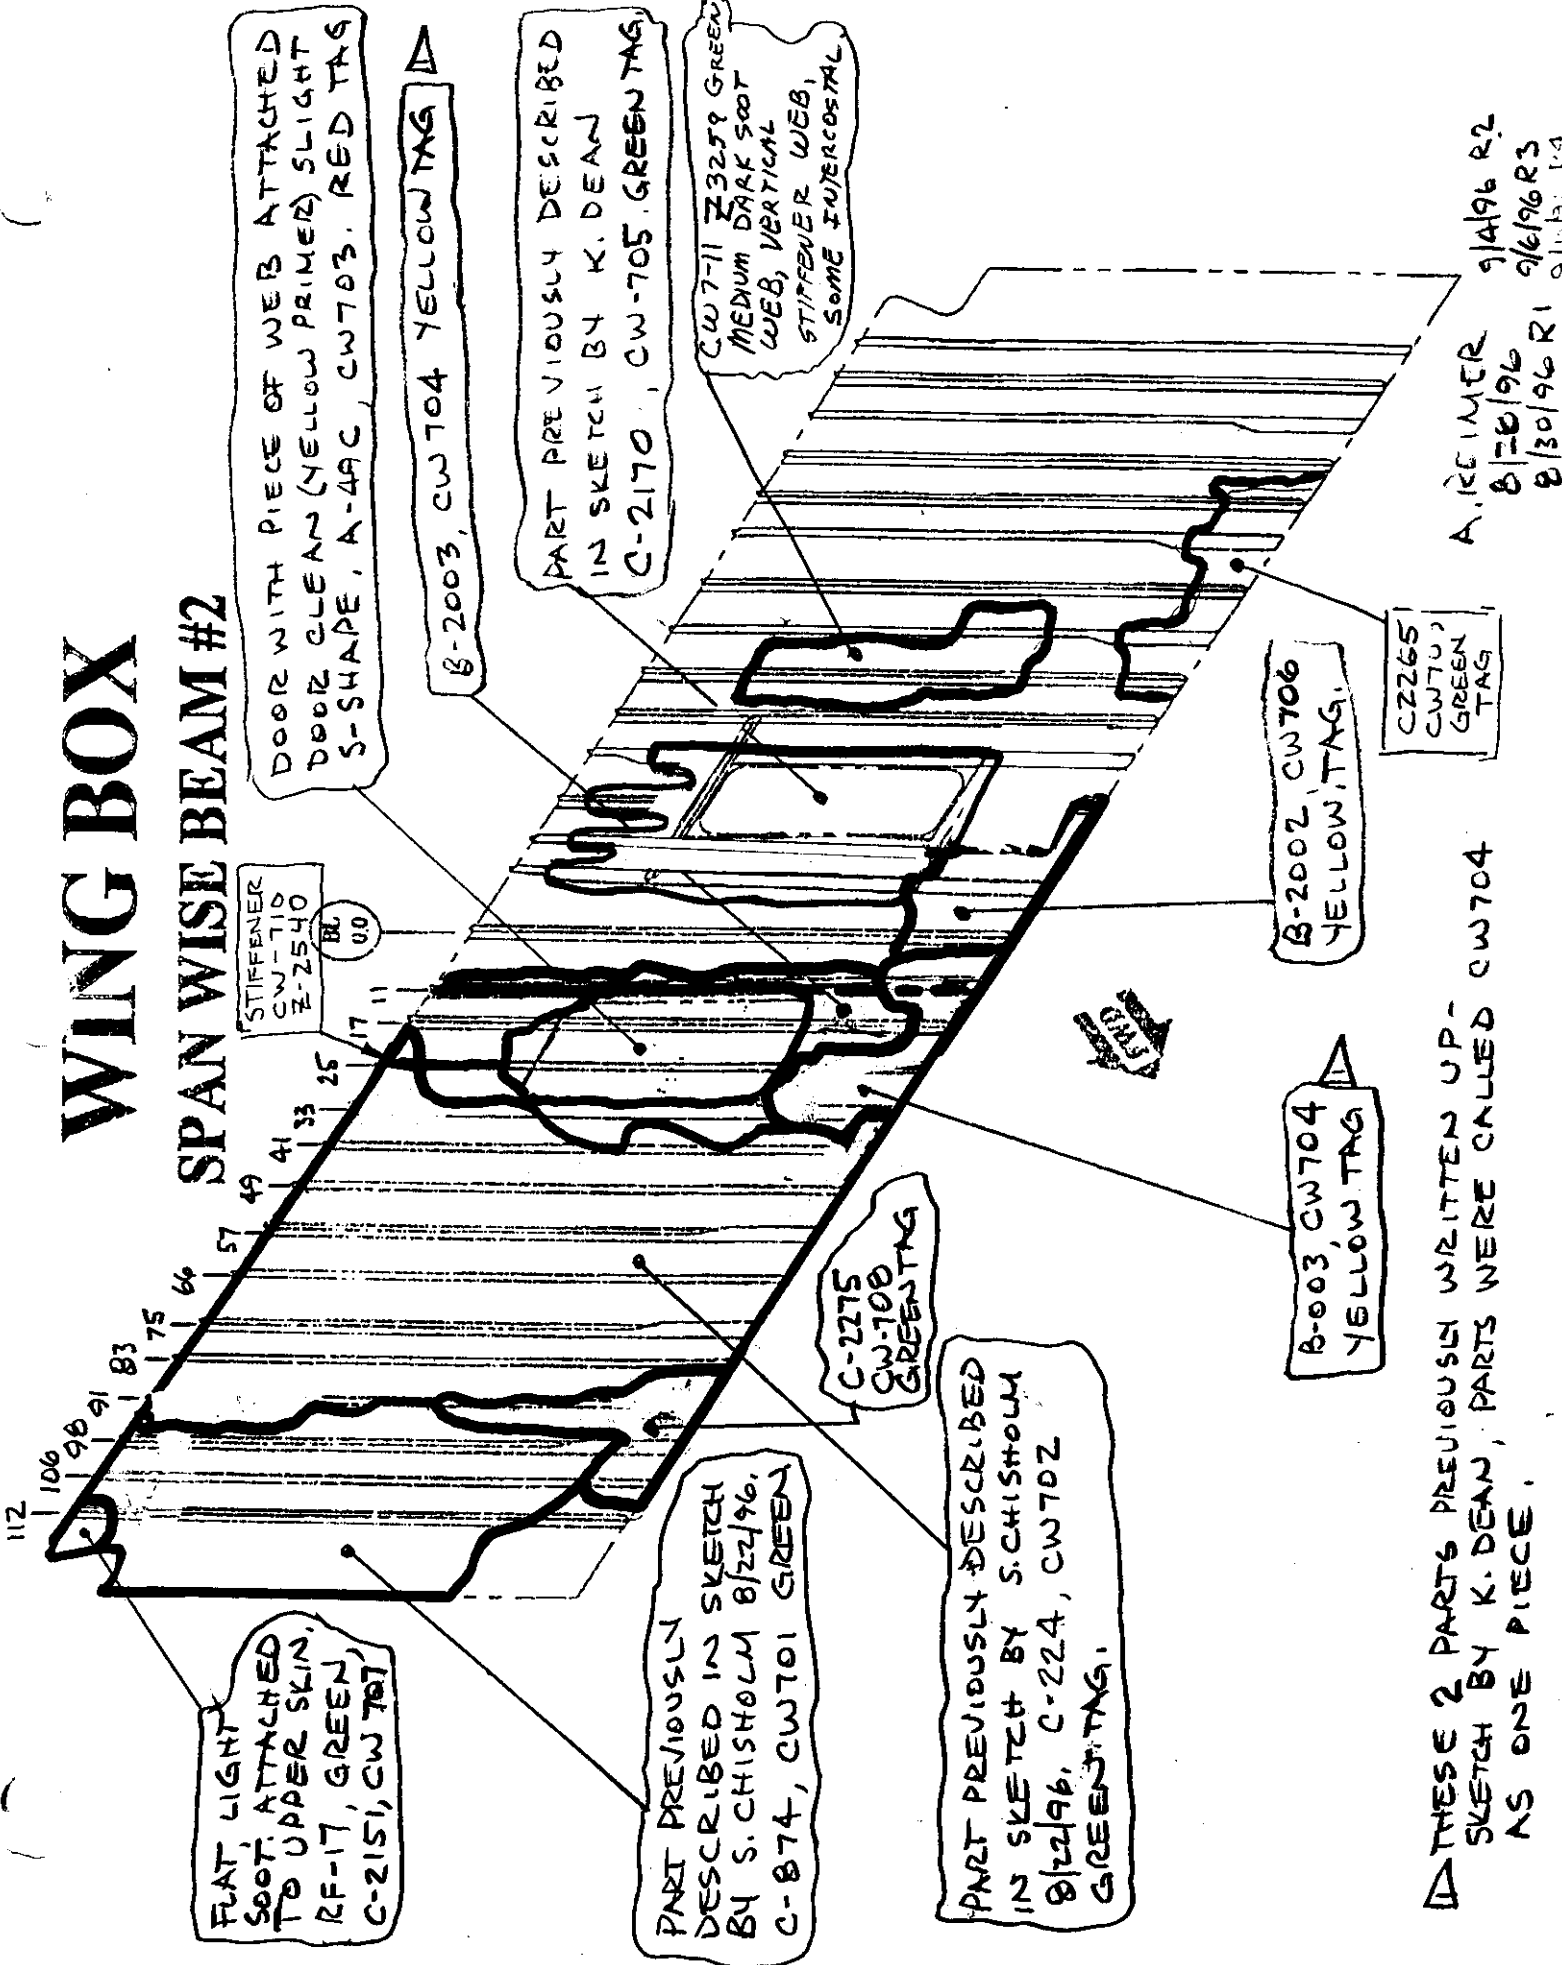 WING BOX
SPAN WISE BEAM #2
STIFFENER
CW-710
Z-2540
BL
0.0
112
106
98
91
83
75
66
57
49
41
33
25
17
11
DOOR WITH PIECE OF WEB ATTACHED
DOOR CLEAN (YELLOW PRIMER) SLIGHT
S-SHAPE, A-49C, CW703. RED TAG
B-2003, CW704 YELLOW TAG
PART PREVIOUSLY DESCRIBED
IN SKETCH BY K. DEAN
C-2170, CW-705. GREEN TAG.
CW7-11 Z3259 GREEN
MEDIUM DARK SOOT
WEB, VERTICAL
STIFFENER WEB,
SOME INTERCOSTAL
FLAT LIGHT
SOOT, ATTACHED
TO UPPER SKIN,
RF-17, GREEN,
C-2151, CW 707
PART PREVIOUSLY
DESCRIBED IN SKETCH
BY S. CHISHOLM 8/22/96.
C-874, CW701 GREEN
PART PREVIOUSLY DESCRIBED
IN SKETCH BY S. CHISHOLM
8/22/96. C-224, CW702
GREEN TAG.
C-2275
CW-708
GREEN TAG
B-003, CW704
YELLOW TAG
1
FWD
B-2002, CW706
YELLOW, TAG.
C2265
GREEN
TAG
THESE 2 PARTS PREVIOUSLY WRITTEN UP-
SKETCH BY K. DEAN, PARTS WERE CALLED CW704
AS ONE PIECE.
9/4/96 R2
9/6/96 R3
8/30/96 R1